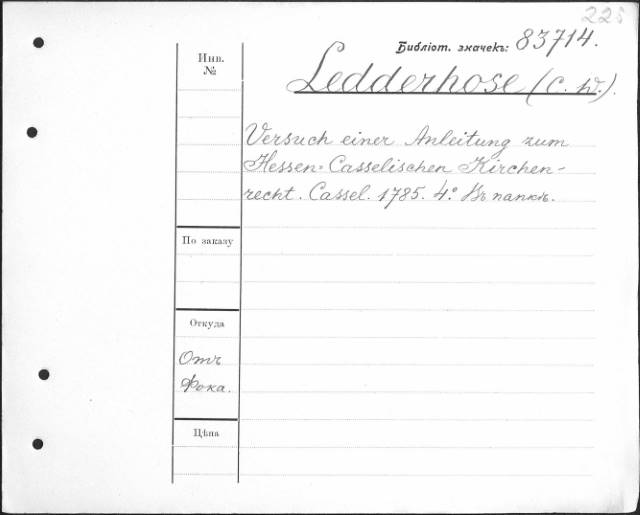 225
Библіот. значекъ: 83714.
Инв.
№
Ledderhose (C. W.).
Versuch einer Anleitung zum
Hessen=Casselischen Kirchen-
recht. Cassel. 1785. 4º. Въ папкѣ.
По заказу
Откуда
Отъ
Фока.
Цѣна